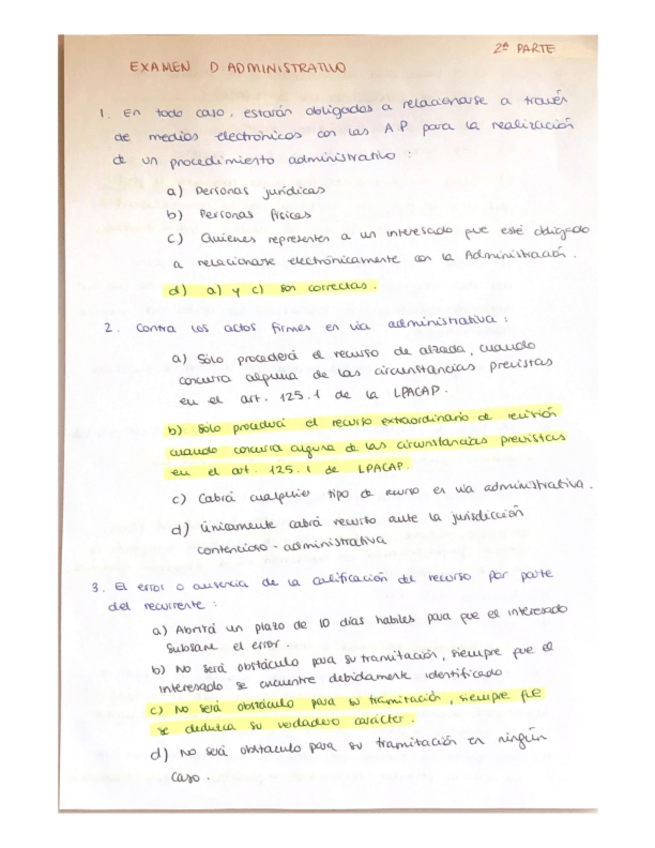 2ª PARTE
EXAMEN D. ADMINISTRATIVO
1. En todo caso, estarán obligadas a relacionarse a través
de medios electrónicos con las AP para la realización
de un procedimiento administrativo :
a) Personas jurídicas
b) Personas físicas
c) Quienes representen a un interesado que esté obligado
a relacionarse electrónicamente con la Administración.
d) a) y c) son correctas.
2. Contra los actos firmes en vía administrativa :
a) Sólo procederá el recurso de alzada, cuando
concurra alguna de las circunstancias previstas
en el art. 125.1 de la LPACAP.
b) Sólo procederá el recurso extraordinario de revisión
cuando concurra alguna de las circunstancias previstas
en el art. 125.1 de LPACAP.
c) Cabrá cualquier tipo de recurso en vía administrativa.
d) Únicamente cabrá recurso ante la jurisdicción
contencioso-administrativa
3. El error o ausencia de la calificación del recurso por parte
del recurrente :
a) Abrirá un plazo de 10 días hábiles para que el interesado
subsane el error.
b) No será obstáculo para su tramitación, siempre que el
interesado se encuentre debidamente identificado
c) No será obstáculo para su tramitación, siempre que
se deduzca su verdadero carácter.
d) No será obstáculo para su tramitación en ningún
caso.